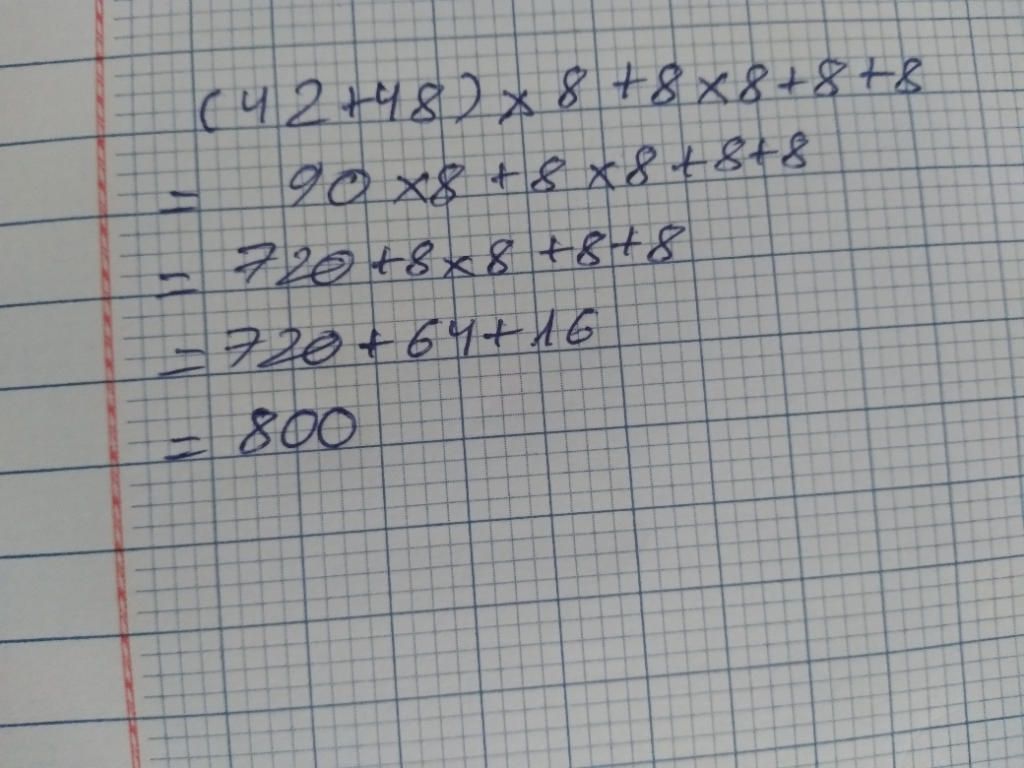 (42+48) × 8 + 8 × 8 + 8 + 8
= 90 × 8 + 8 × 8 + 8 + 8
= 720 + 8 × 8 + 8 + 8
= 720 + 64 + 16
= 800